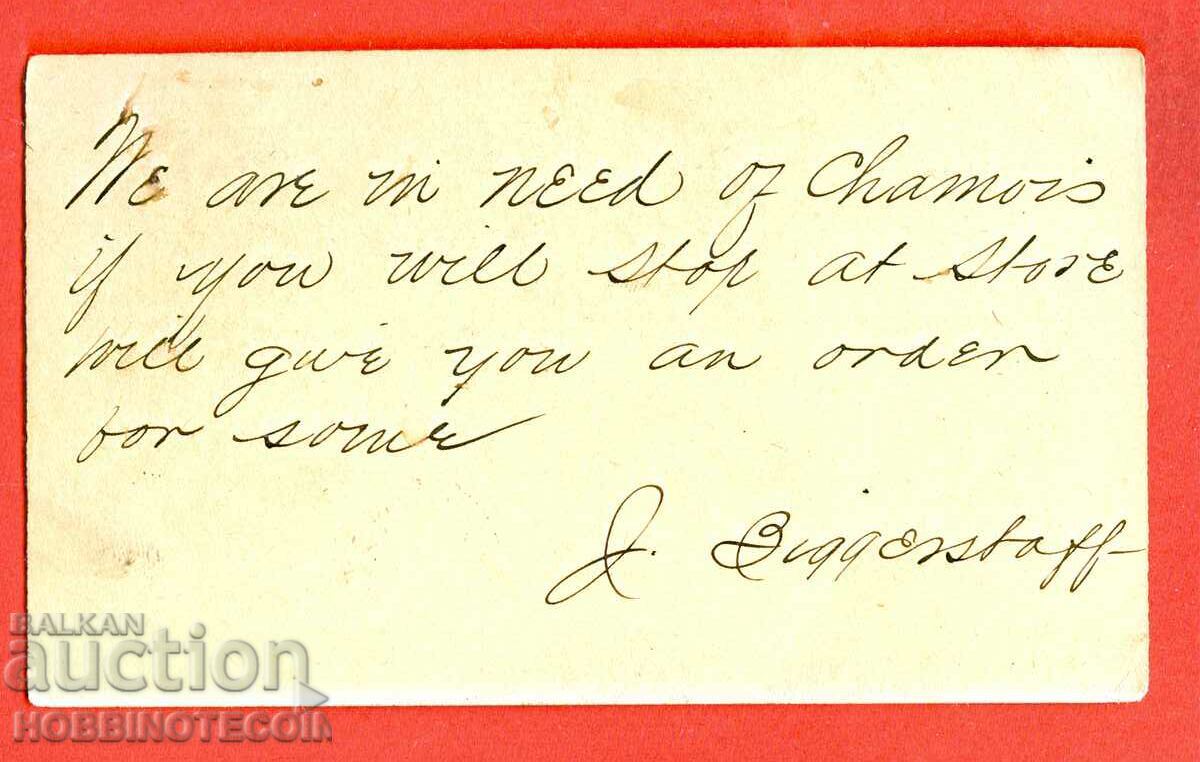 We are in need of Chamois
if you will stop at store
will give you an order
for some
J. Biggerstaff
BALKAN
auction
HOBBINOTECOIN